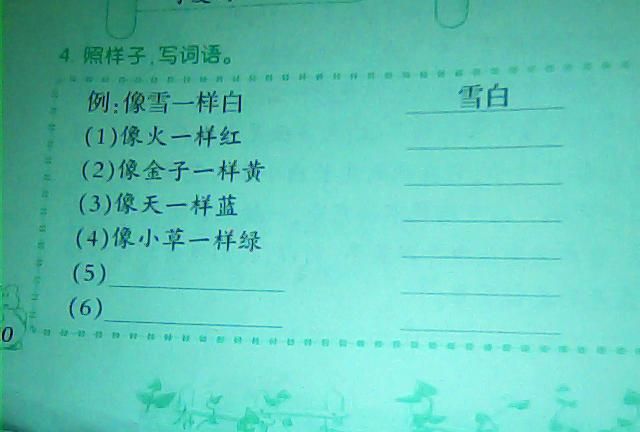 4. 照样子,写词语。
例:像雪一样白 雪白
(1)像火一样红
(2)像金子一样黄
(3)像天一样蓝
(4)像小草一样绿
(5)
(6)
0